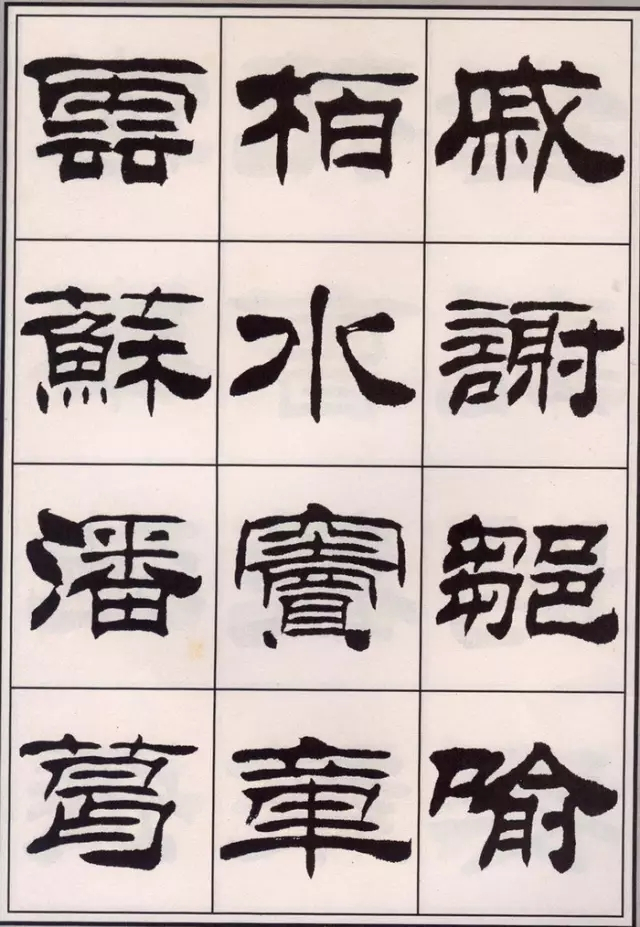 戚謝鄒喻
柏水竇章
雲蘇潘葛